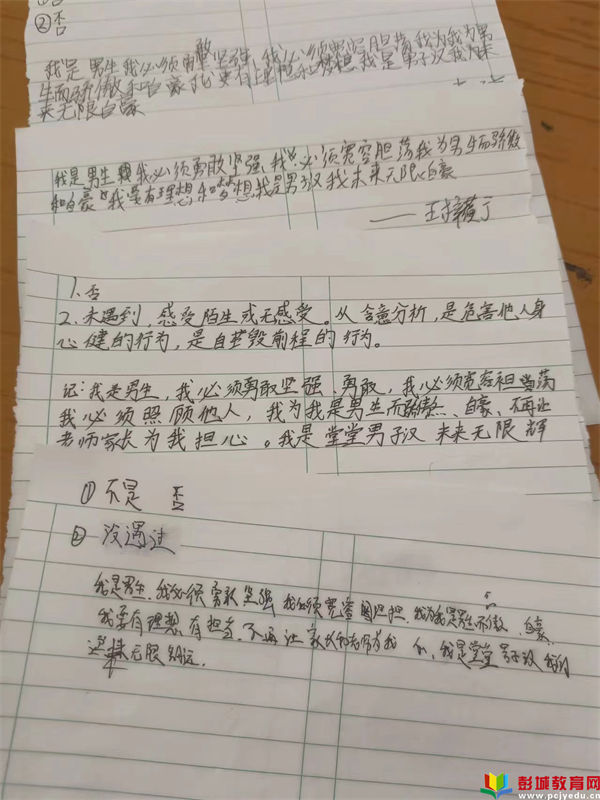 ②否
我是男生我必须勇敢坚强,我必须宽容胆荡我为我为男
生而骄傲和自豪我要有理想和梦想我是男子汉我为未
来无限自豪
我是男生 我必须勇敢坚强、我必须宽容胆荡我为男生而骄傲
和自豪 我要有理想和梦想我是男汉我未来无限自豪
1、否
2、未遇到,感受陌生或无感受。从含意分析,是危害他人身
心健的行为,是自甘毁前程的行为。
记:我是男生,我必须勇敢坚强、勇敢,我必须宽容坦荡
我必须照顾他人,我为我是男生而骄傲、自豪、不再让
老师家长为我担心。我是堂堂男子汉 未来无限辉
①不是 否
② 没遇过
我是男生,我必须勇敢坚强 我必须宽容 我为我是男生 自豪、
我要有理想有担当,不再让家长和老师为我 我是堂堂男子汉 我的
未来无限
彭城教育网
www.pcjyedu.cn